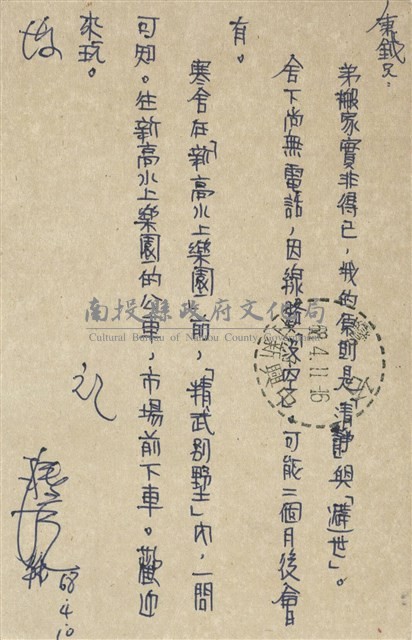 東鉞兄：
弟搬家實非得已，我的原則是「清靜」與「遯世」。
舍下尚無電話，因線路，可能二個月後會
有。
寒舍在「新高水上樂園」前，「精武別墅」內，一問
可知。往新高水上樂園的公車，市場前下車。歡迎
來玩。
祝
好
68.4.10
68.4.11.16
新興
南投縣政府文化局
Cultural Bureau of Nantou County Government